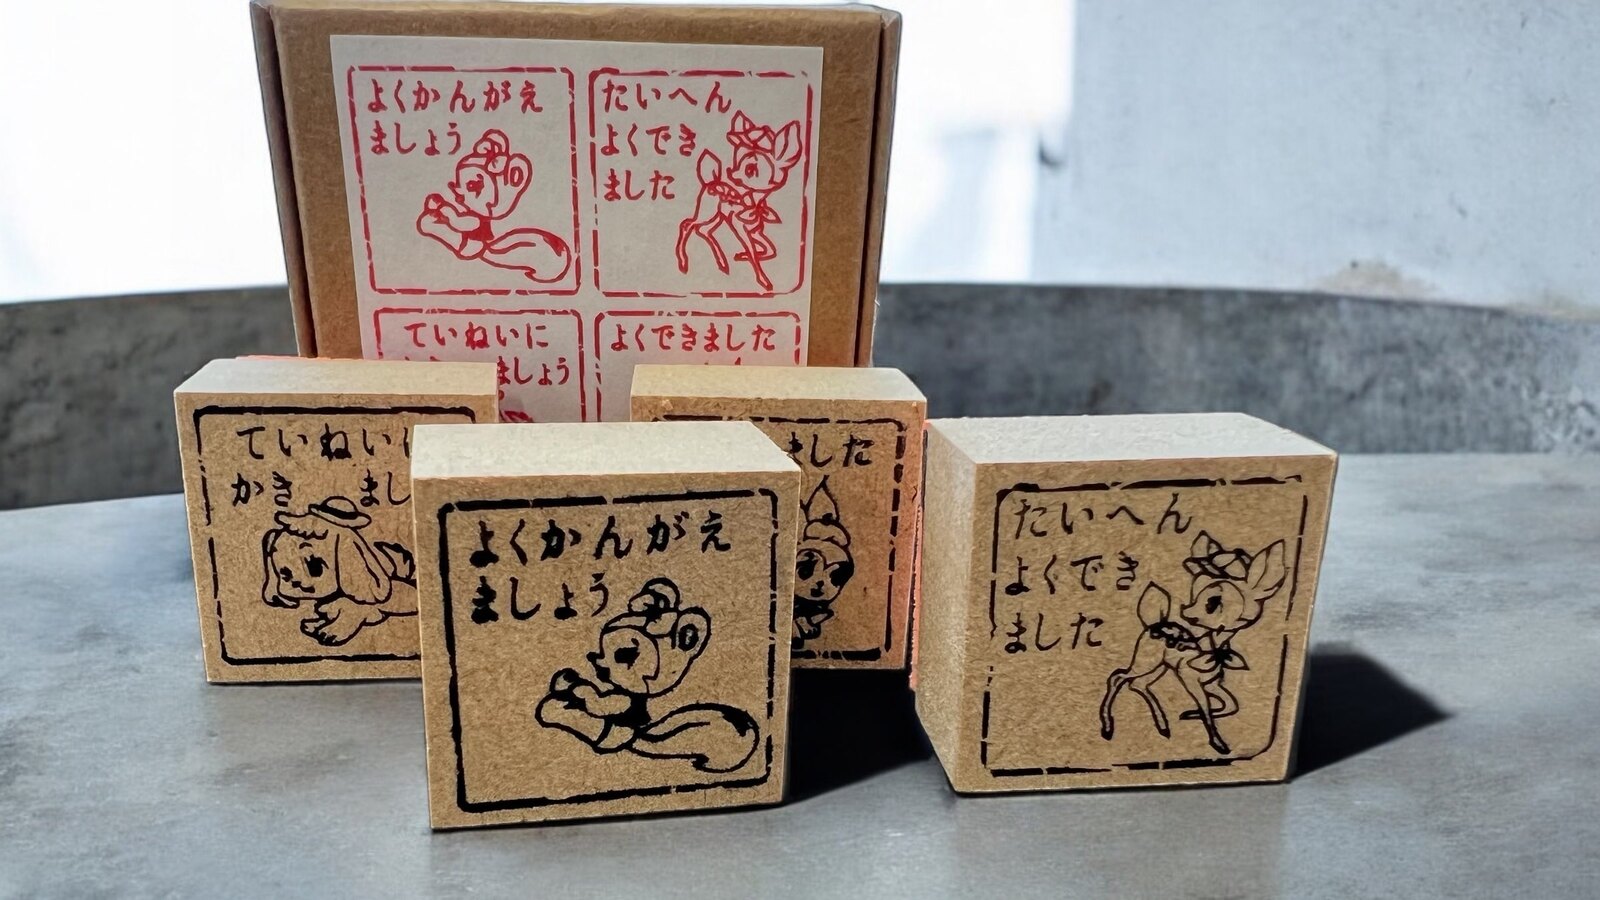 よくかんがえ
ましょう
たいへん
よくでき
ました
ていねいに
ましょう
よくできました
ていねいに
かき まし
よくかんがえ
ましょう
ました
たいへん
よくでき
ました